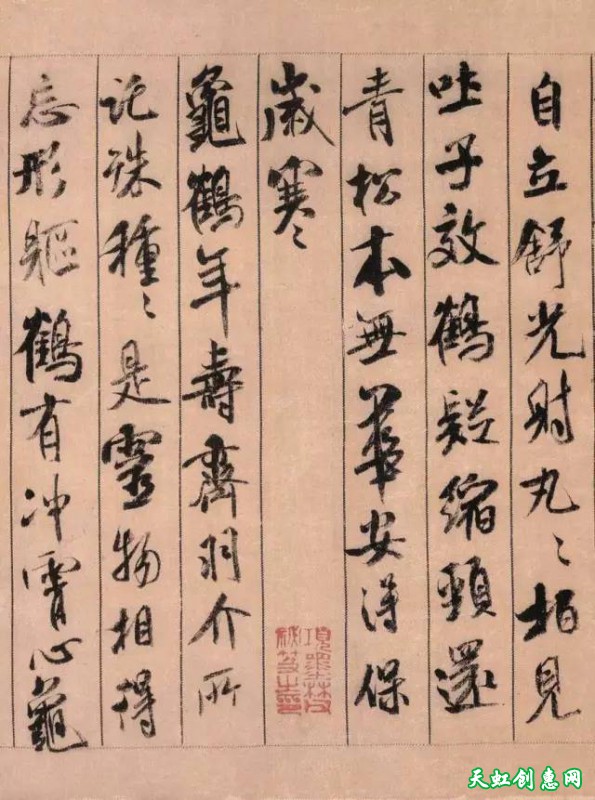 自立舒光射丸〻柏見
吐子效鶴疑縮頸還
青松本無華安得保
歲寒〻
龜鶴年壽齊羽介所
託殊種〻是靈物相得
忘形軀鶴有冲霄心龜
項墨林父
祕笈之印
天虹创意网